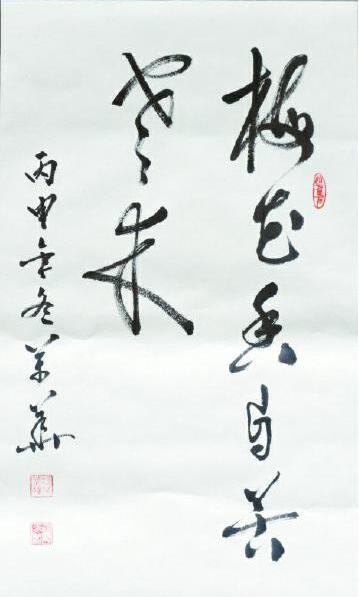 梅花香自苦
寒来
丙申年冬兰华